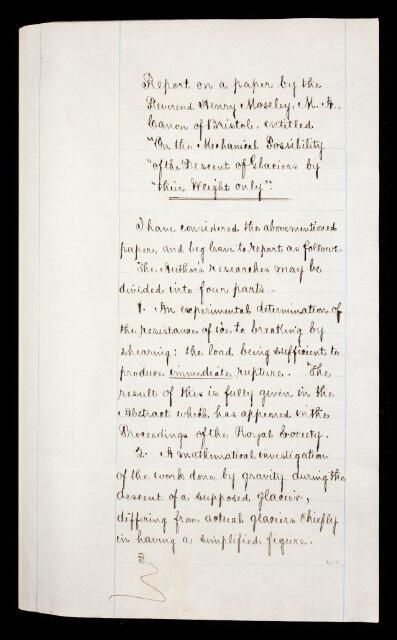 Report on a paper by the
Reverend Henry Moseley, M. A.,
Canon of Bristol, entitled
"On the Mechanical Possibility
"of the Descent of Glaciers by
"their Weight only".
I have considered the abovementioned
paper, and beg leave to report as follows.
The Author's researches may be
divided into four parts..
1. An experimental determination of
the resistance of ice to breaking by
shearing: the load being sufficient to
produce immediate rupture. The
result of this is fully given in the
Abstract which has appeared in the
Proceedings of the Royal Society.
2. A mathematical investigation
of the work done by gravity during the
descent of a supposed glacier,
differing from actual glaciers chiefly
in having a simplified figure.